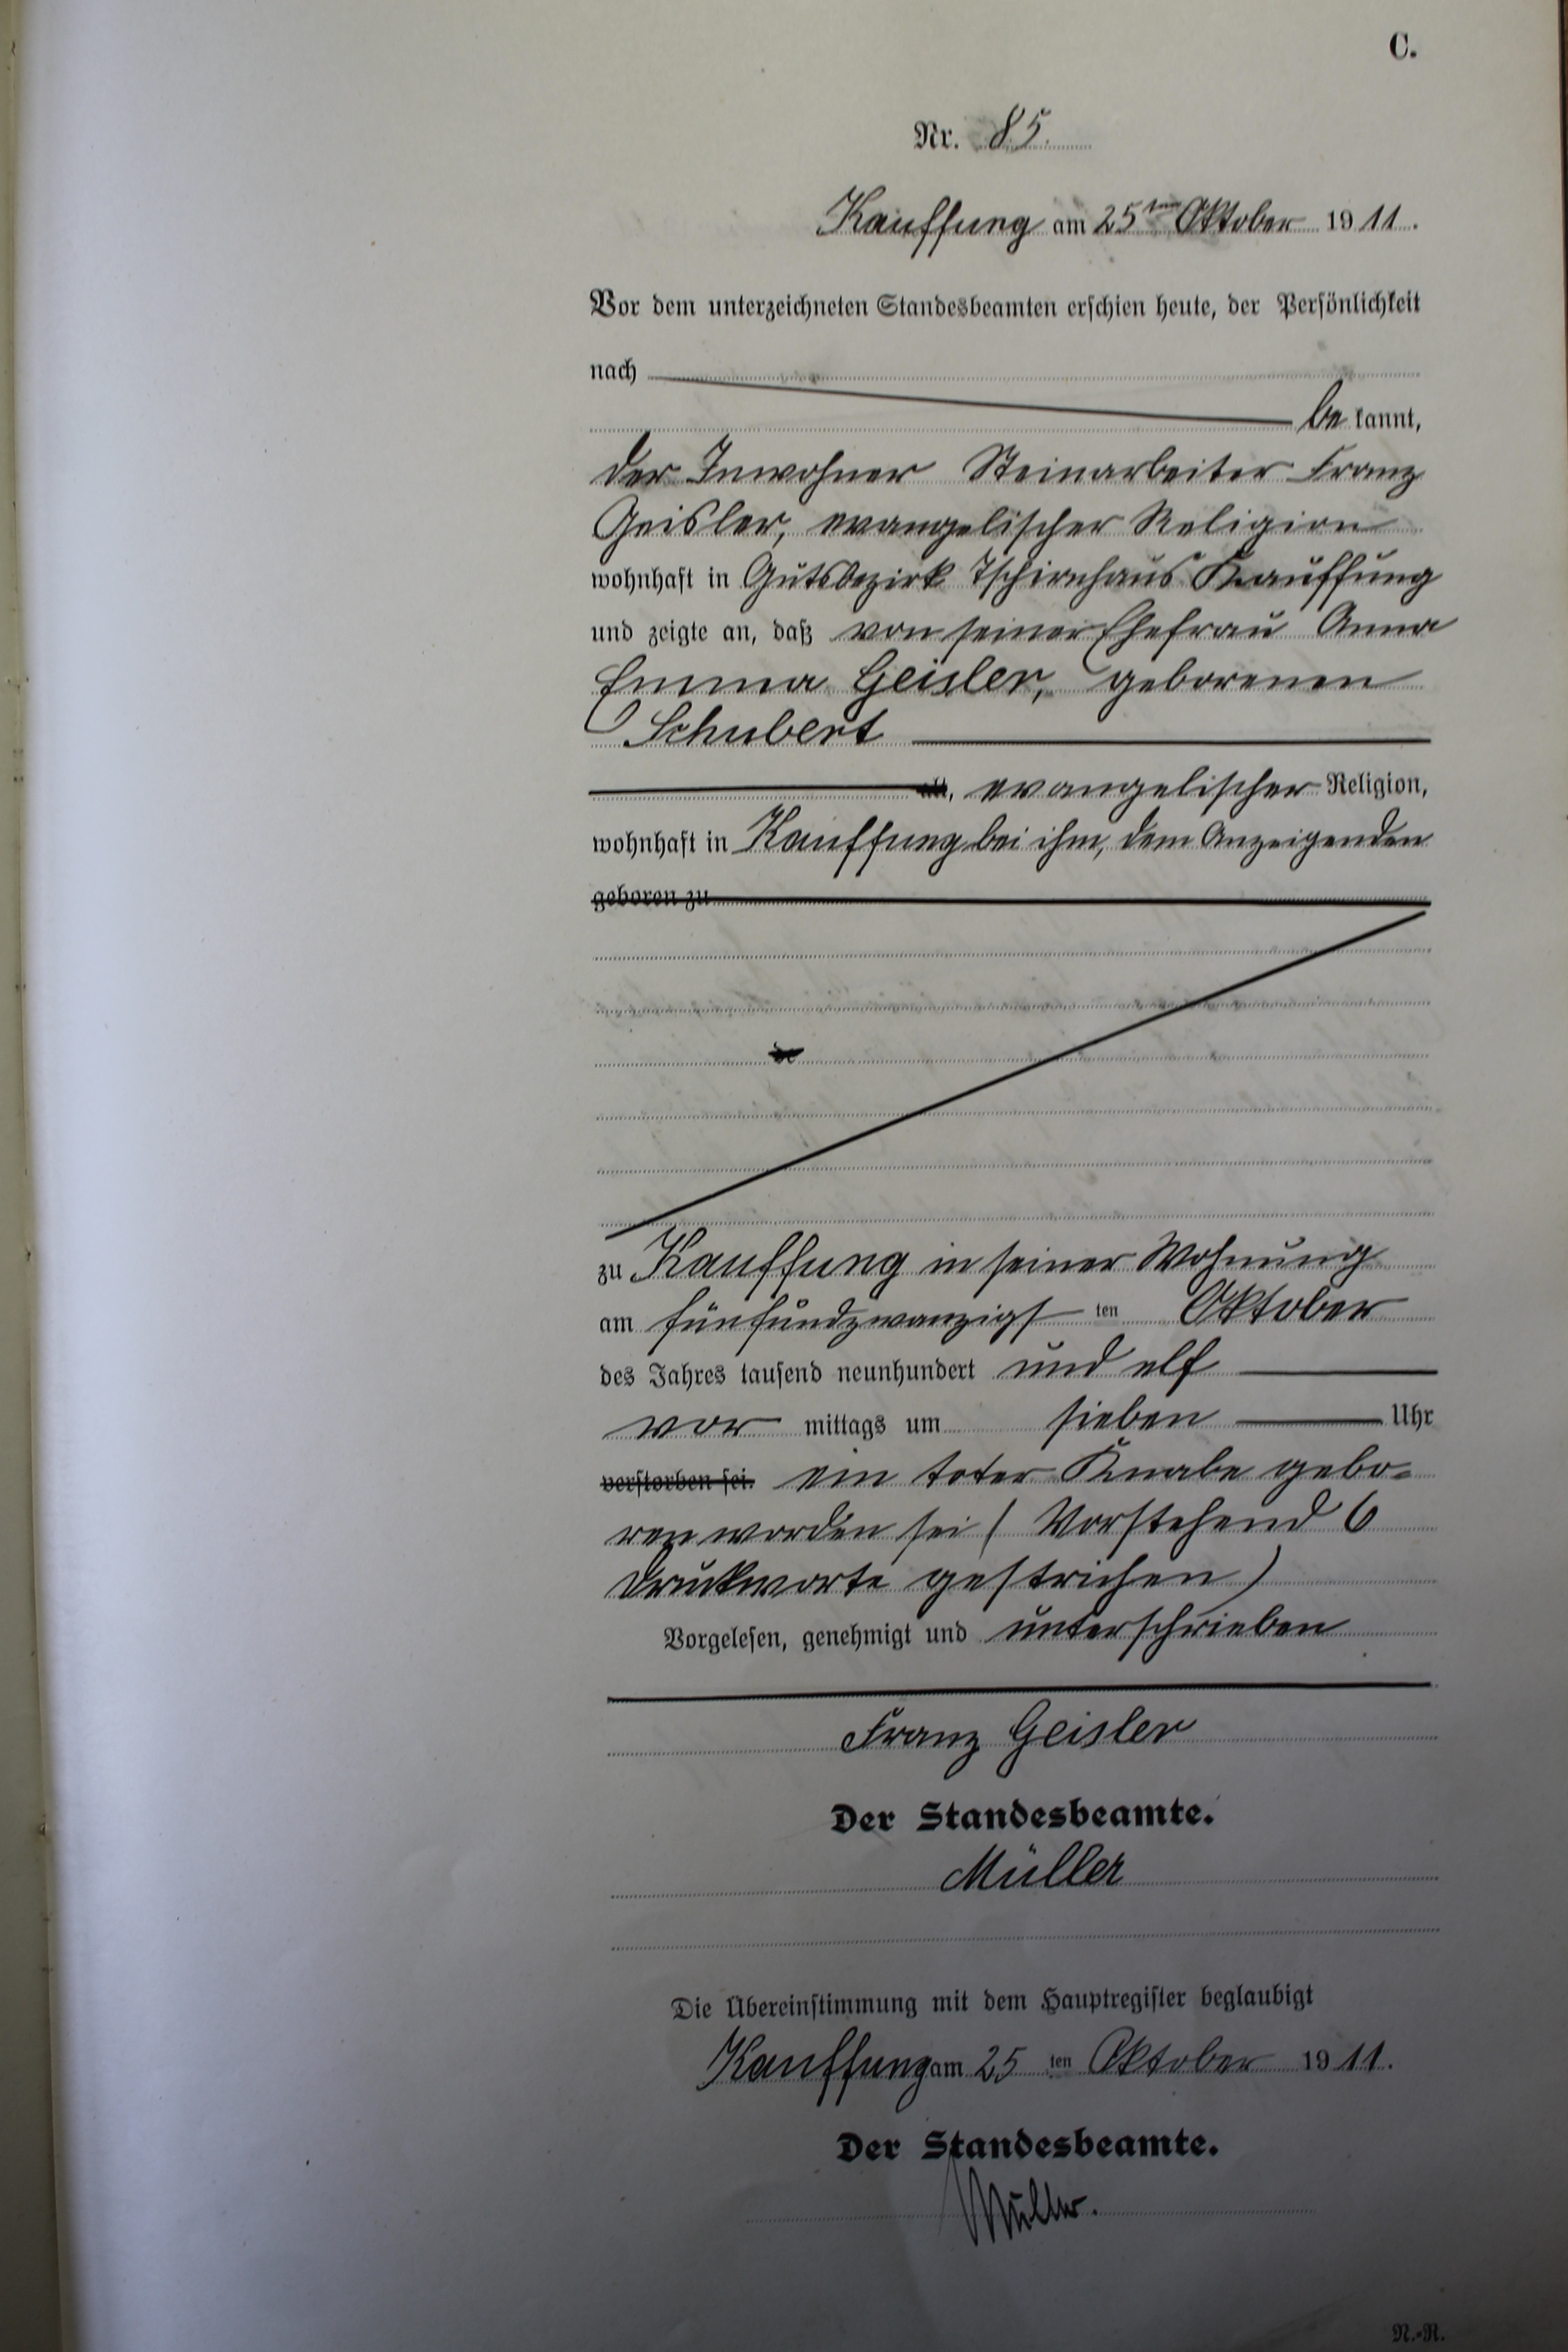 C.
Nr. 85.
Kauffung am 25ten Oktober 1911.
Vor dem unterzeichneten Standesbeamten erschien heute, der Persönlichkeit
nach
be kannt,
der Inwohner Steinarbeiter Franz
Geisler, evangelischer Religion
wohnhaft in Gutsbezirk Tschirnhaus Kauffung
und zeigte an, daß von seiner Ehefrau Anna
Emma Geisler, geborenen
Schubert
alt, evangelischer Religion,
wohnhaft in Kauffung bei ihm, dem Anzeigenden
geboren zu
de
zu Kauffung in seiner Wohnung
am fünfundzwanzigs ten Oktober
des Jahres tausend neunhundert und elf
vor mittags um sieben Uhr
verstorben sei. ein toter Knabe gebo-
ren worden sei (Vorstehend 6
Druckworte gestrichen)
Vorgelesen, genehmigt und unterschrieben
Franz Geisler
Der Standesbeamte.
Müller
Die Übereinstimmung mit dem Hauptregister beglaubigt
Kauffung am 25 ten Oktober 1911.
Der Standesbeamte.
Müller.
N.-R.